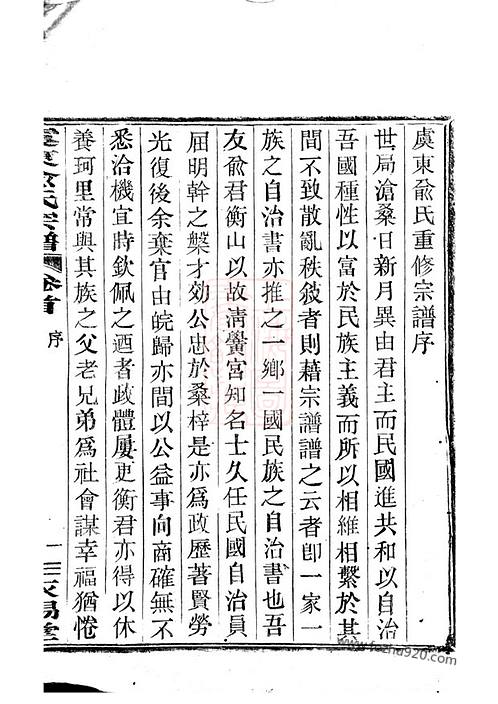 虞東俞氏重修宗譜序
世局滄桑日新月異由君主而民國進共和以自治
吾國種性以富於民族主義而所以相維相繫於其
間不致散亂秩敘者則藉宗譜譜之云者卽一家一
族之自治書亦推之一鄉一國民族之自治書也吾
友俞君衡山以故淸黌宮知名士久任民國自治員
屈明幹之槃才効公忠於桑梓是亦爲政歷著賢勞
光復後余棄官由皖歸亦間以公益事向商確無不
悉洽機宜時欽佩之迺者政體屢更衡君亦得以休
養珂里常與其族之父老兄弟爲社會謀幸福猶惓
虞東俞氏宗譜
卷首
序
一
www.fozhu920.com